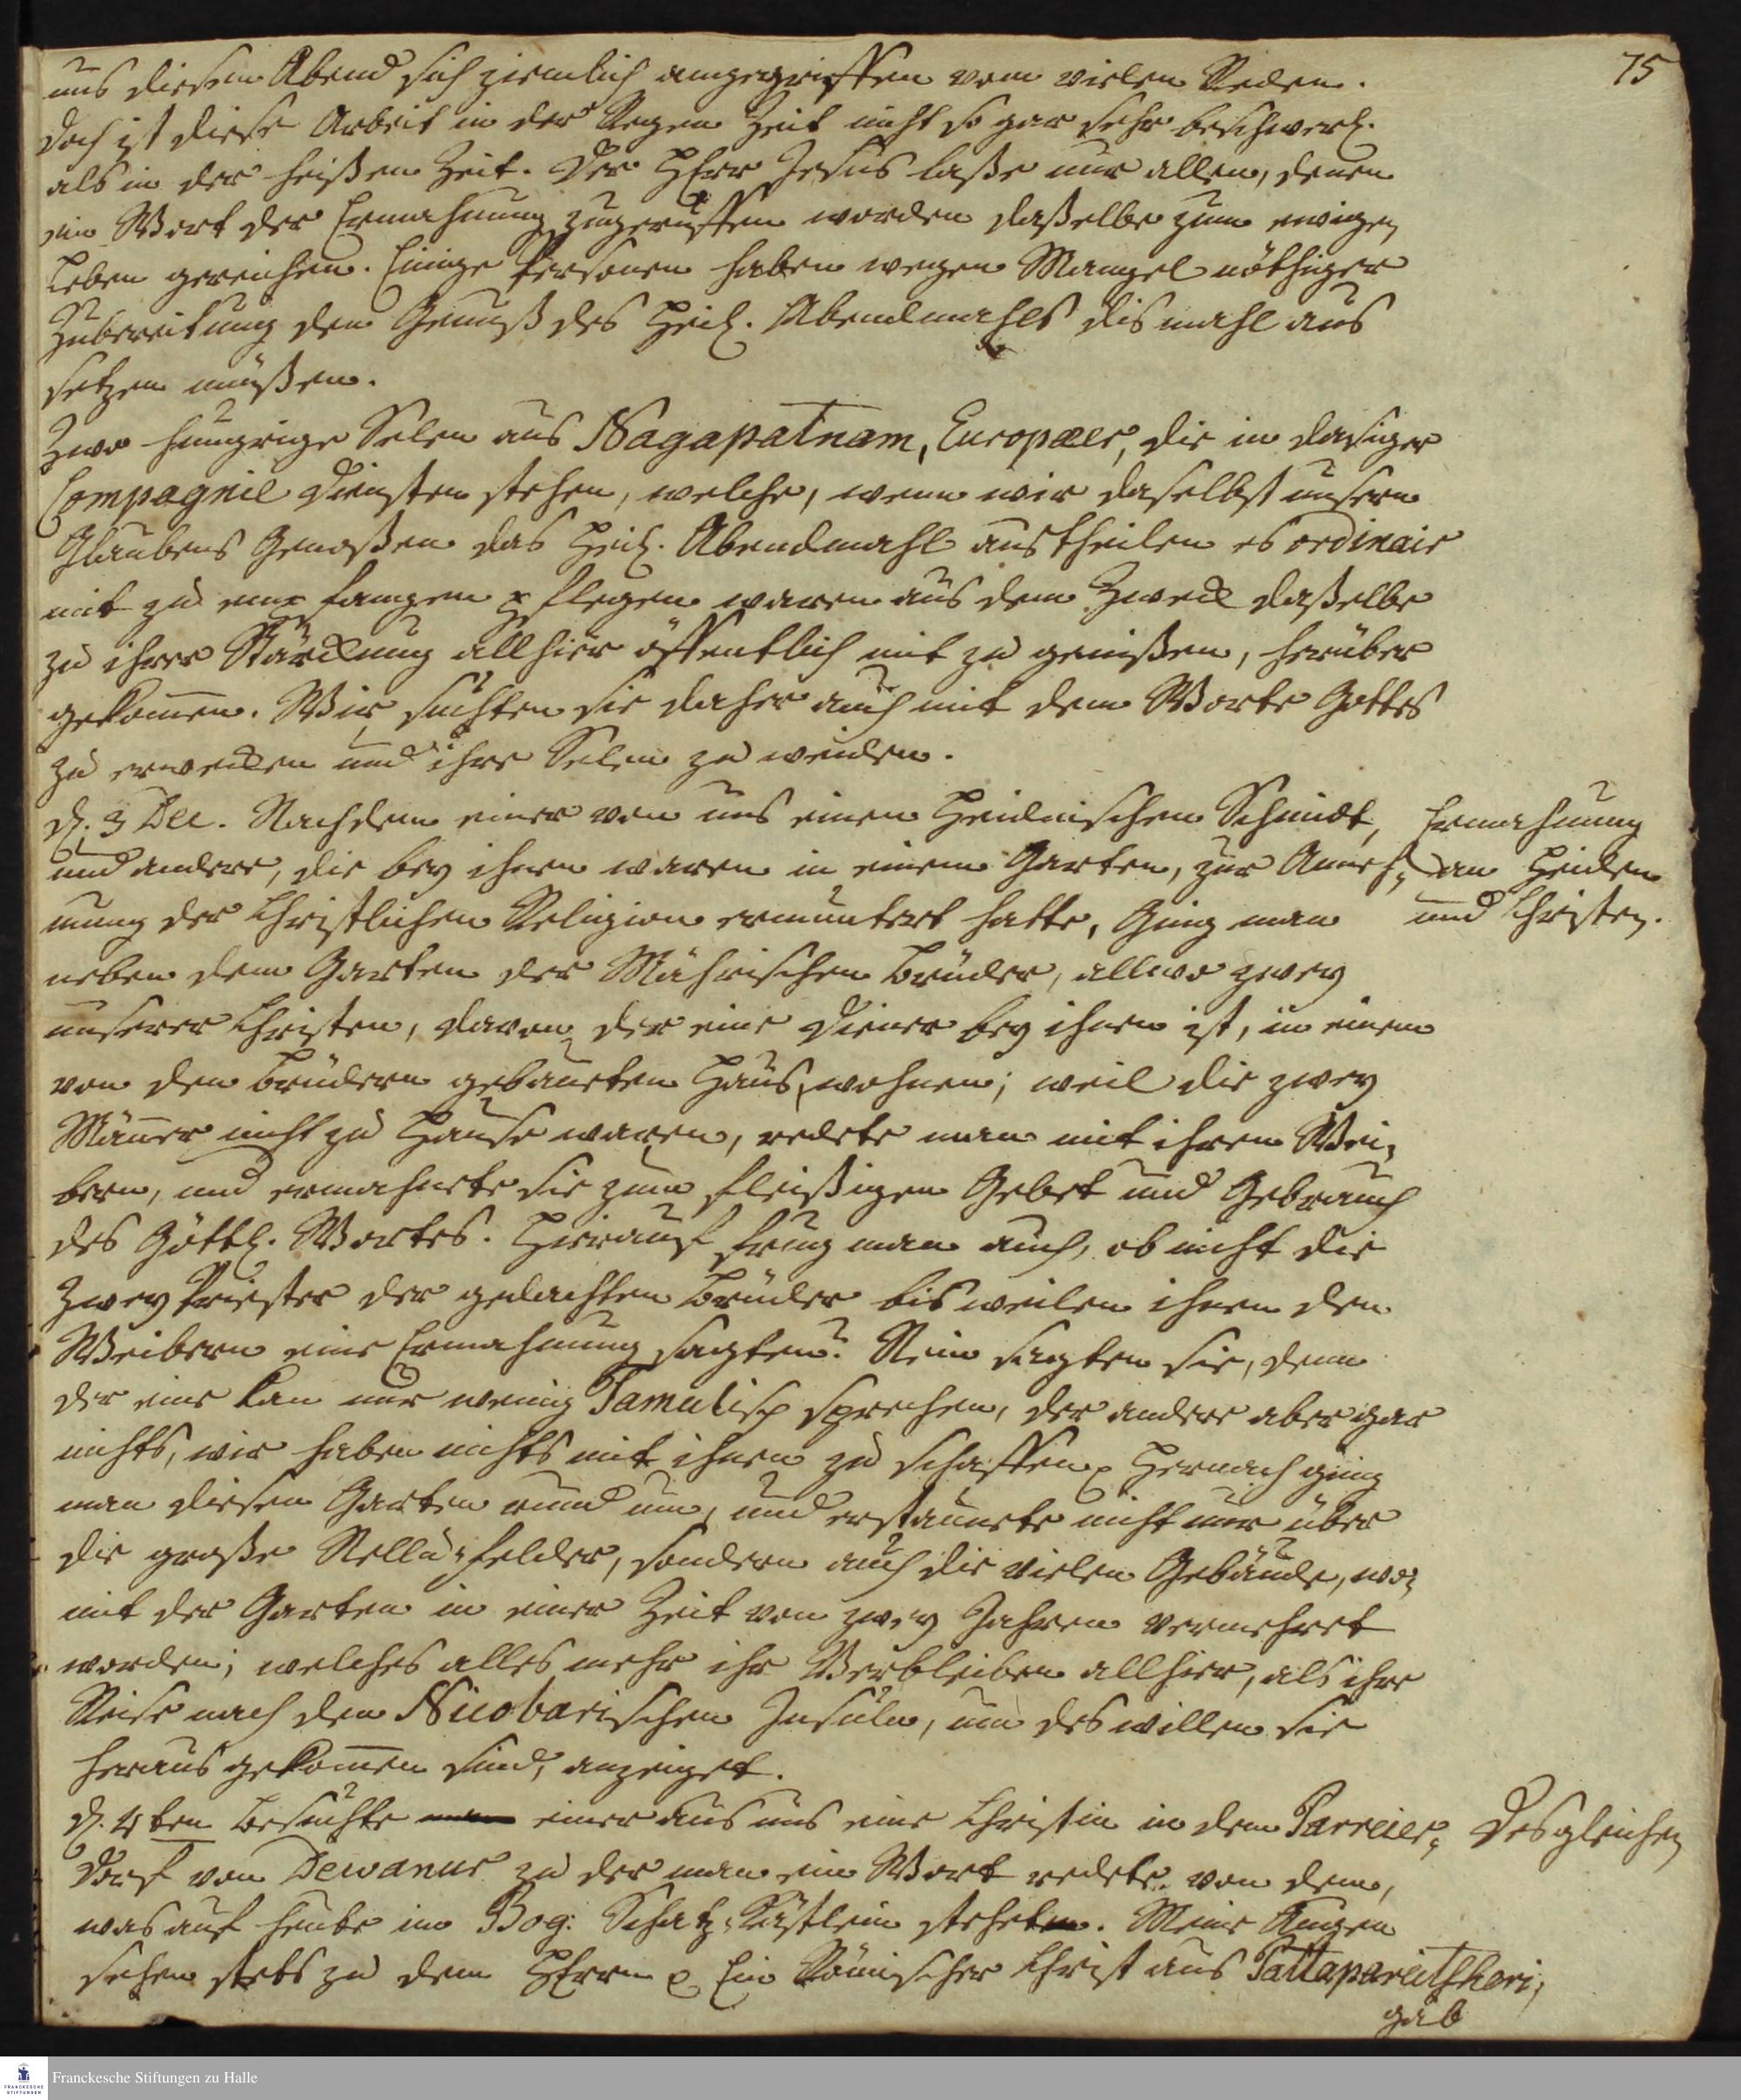 75
uns diesen Abend sich ziemlich angegriffen vom vielen Reden.
Doch ist diese Arbeit in der Regen Zeit nicht so gar sehr beschwerl.
als in der heißen Zeit. Der HErr Jesus laße nur allen, denen
ein Wort der Ermahnung zugeruffen worden daßelbe zum ewigen
Leben gereichen. Einige Personen haben wegen Mangel nöthiger
Zubereitung den Genuß des Heil. Abendmahls dis mahl aus
setzen müßen.
Zwo hungrige Selen aus Nagapatnam, Europæer, die in dasiger
Compagnie Diensten stehen, welche, wenn wir daselbst unsern
Glaubens Genoßen das Heil. Abendmahl austheilen es ordinair
mit zu empfangen pflegen waren aus dem Zweck daßelbe
zu ihrer Stärckung allhier öffentlich mit zu genißen, herüber
gekom̄en. Wir suchten sie daher auch mit dem Worte Gottes
zu erwecken und ihre Selen zu weiden.
d. 3 Dec. Nachdem einer von uns einen Heidnischen Schmidt,
und andere, die bey ihm waren in einem Garten, zur Anneh-
mung der Christlichen Religion ermuntert hatte, Ging man
Ermahnung
an Heiden
und Christen.
neben dem Garten der Mährischen Brüder, allwo zwey
unserer Christen, davon der eine Diener bey ihnen ist, in einem
von den Brüdern gebaueten Haus wohnen; weil die zwey
Män̄er nicht zu Hause waren, redete man mit ihren Wei-
bern, und ermahnete sie zum fleißigen Gebet und Gebrauch
des Göttl. Wortes. Hierauf frug man auch, ob nicht die
zwey Priester der gedachten Brüder bisweilen ihnen den
Weibern eine Ermahnung sagten? Nein sagten sie, denn
der eine kan nur wenig Tamulisch sprechen, der andere aber gar
nichts, wir haben nichts mit ihnen zu schaffen. Hernach ging
man diesen Garten rund um, und erstaunete nicht nur über
die große Nellu-felder, sondern auch die vielen Gebäude, wo-
mit der Garten in einer Zeit von zwey Jahren vermehret
worden; welches alles mehr ihr Verbleiben allhier, als ihre
Reise nach den Nicobarischen Insuln, um deswillen sie
heraus gekom̄en sind, anzeiget.
d. 4ten besuchte man einer aus uns eine Christin in dem Parreier-
Desgleichen
dorf von Dewanur zu der man ein Wort redete von dem,
was auf heute im Bog: Schatz-Kästlein stehet. Meine Augen
sehen stets zu dem HErrn p Ein Römischer Christ aus Pattaparcitscheri,
gab
Franckesche Stiftungen zu Halle